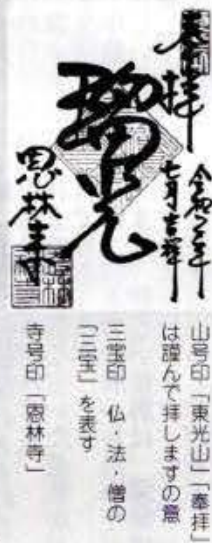 奉拝
令和二年
七月吉祥
瑞光
恩林寺
山号印「東光山」「奉拝」
は謹んで拝しますの意
三宝印 仏・法・僧の
「三宝」を表す
寺号印「恩林寺」